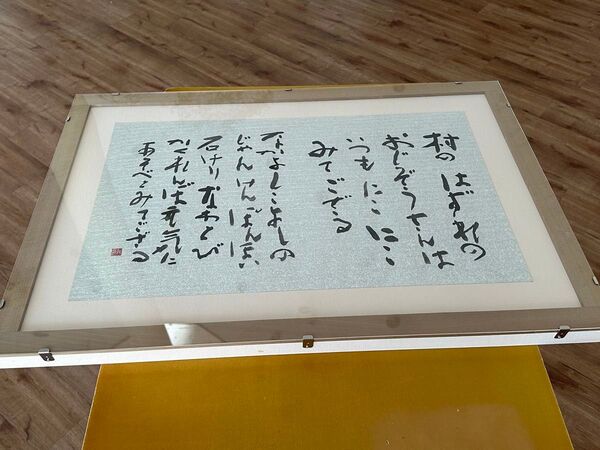 村の はずれの
おじぞうさんは
いつも にこ にこ
みてござる
なかよしこよしの
じゃんけんぽんほい
石けり なわとび
かくれんぼ元気に
あそべとみてござる